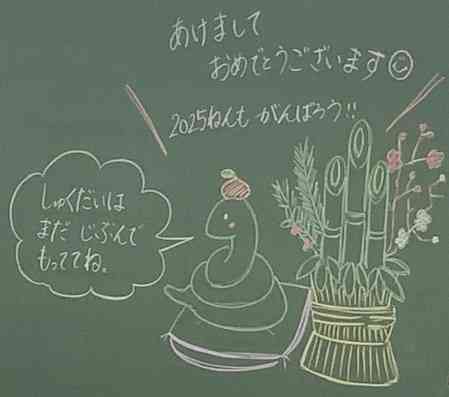 あけまして
おめでとうございます
2025ねんも がんばろう!!
しゅくだいは
まだ じぶんで
もっててね。